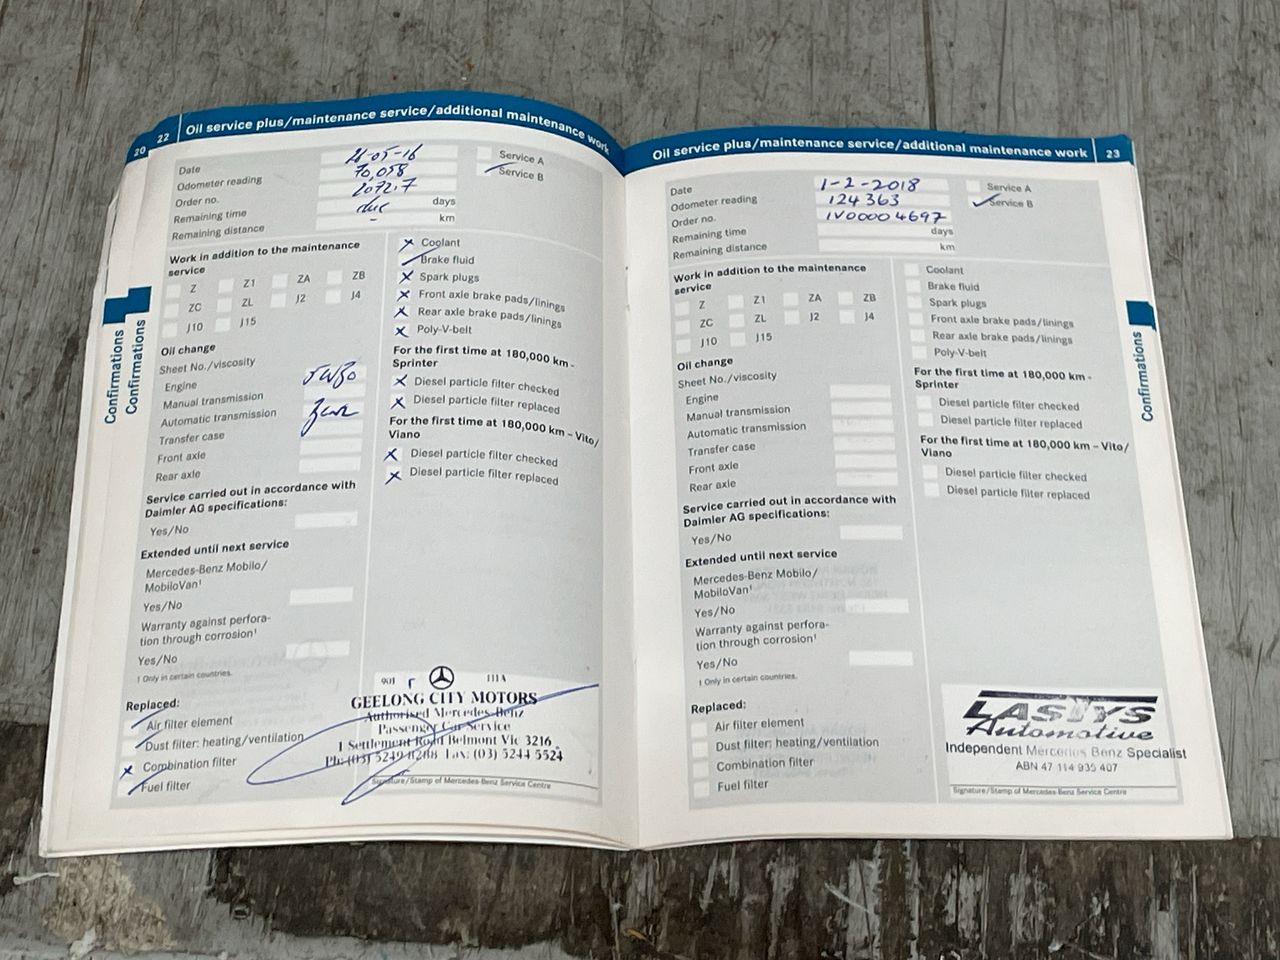 20
22 Oil service plus/maintenance service/additional maintenance work
Date 26-05-16
Odometer reading 70,058
Order no. 207217
Remaining time due days
Remaining distance - km
Service A
Service B
Work in addition to the maintenance
service
Z Z1 ZA ZB
ZC ZL J2 J4
J10 J15
Oil change
Sheet No./viscosity
Engine 5W30
Manual transmission
Automatic transmission
Transfer case
Front axle
Rear axle
Service carried out in accordance with
Daimler AG specifications:
Yes/No
Extended until next service
Mercedes-Benz Mobilo/
MobiloVan¹
Yes/No
Warranty against perfora-
tion through corrosion¹
Yes/No
1 Only in certain countries.
Replaced:
Air filter element
Dust filter: heating/ventilation
Combination filter
Fuel filter
Coolant
Brake fluid
Spark plugs
Front axle brake pads/linings
Rear axle brake pads/linings
Poly-V-belt
For the first time at 180,000 km -
Sprinter
Diesel particle filter checked
Diesel particle filter replaced
For the first time at 180,000 km – Vito/
Viano
Diesel particle filter checked
Diesel particle filter replaced
901 111A
GEELONG CITY MOTORS
Authorised Mercedes-Benz
Passenger Car Service
1 Settlement Road Belmont Vic 3216
Ph: (03) 5249 8288 Fax: (03) 5244 5524
Signature/Stamp of Mercedes-Benz Service Centre
Confirmations
Confirmations
Oil service plus/maintenance service/additional maintenance work 23
Date 1-2-2018
Odometer reading 124363
Order no. IV00004697
Remaining time days
Remaining distance km
Service A
Service B
Work in addition to the maintenance
service
Z Z1 ZA ZB
ZC ZL J2 J4
J10 J15
Oil change
Sheet No./viscosity
Engine
Manual transmission
Automatic transmission
Transfer case
Front axle
Rear axle
Service carried out in accordance with
Daimler AG specifications:
Yes/No
Extended until next service
Mercedes-Benz Mobilo/
MobiloVan¹
Yes/No
Warranty against perfora-
tion through corrosion¹
Yes/No
1 Only in certain countries.
Replaced:
Air filter element
Dust filter: heating/ventilation
Combination filter
Fuel filter
Coolant
Brake fluid
Spark plugs
Front axle brake pads/linings
Rear axle brake pads/linings
Poly-V-belt
For the first time at 180,000 km -
Sprinter
Diesel particle filter checked
Diesel particle filter replaced
For the first time at 180,000 km – Vito/
Viano
Diesel particle filter checked
Diesel particle filter replaced
LASLYS
Automotive
Independent Mercedes Benz Specialist
ABN 47 114 935 407
Signature/Stamp of Mercedes-Benz Service Centre
Confirmations